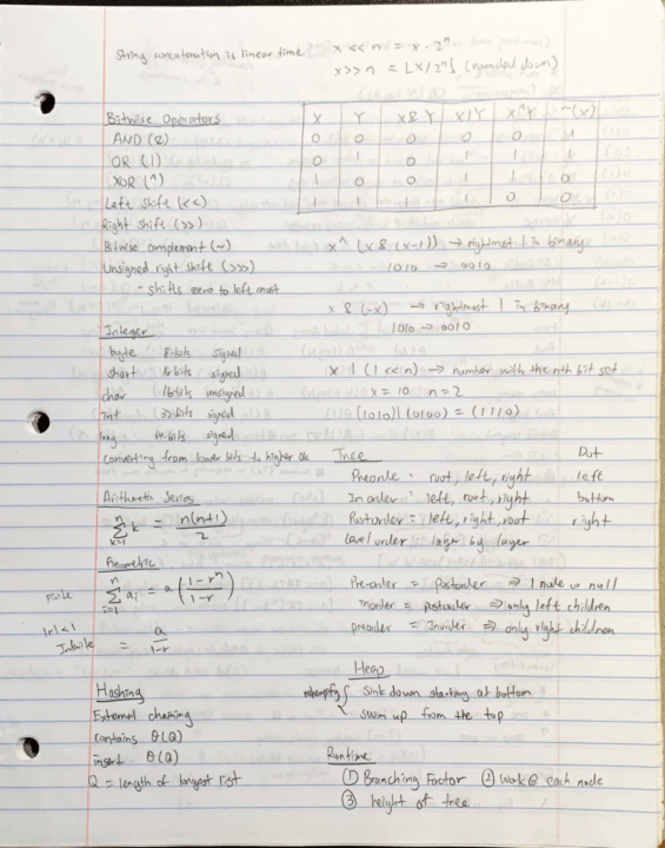 String concatenation is linear time
x << n = x · 2^n
x >> n = ⌊x/2^n⌋ (rounded down)
Bitwise Operators
AND (&)
OR (|)
XOR (^)
Left Shift (<<)
Right Shift (>>)
Bitwise complement (~)
Unsigned right shift (>>>)
- shifts zero to left most
X Y X & Y X|Y X^Y ~(x)
0 0 0 0 0 1
0 1 0 1 1 1
1 0 0 1 1 0
1 1 1 1 0 0
x^ (x & (x-1)) → rightmost 1 in binary
1010 → 0010
x & (-x) → rightmost 1 in binary
1010 → 0010
x | (1 << n) → number with the nth bit set
x = 10 n = 2
(1010)|(0100) = (1110)
Integer
byte 8-bits signed
short 16-bits signed
char 16-bits unsigned
int 32-bits signed
long 64-bits signed
converting from lower bits to higher ok
Arithmetic Series
n∑k=1 k = n(n+1)/2
Geometric
finite n∑i=1 ai = a((1-r^n)/(1-r))
|r|<1
Infinite = a/(1-r)
Hashing
External chaining
contains Θ(Q)
insert Θ(Q)
Q = length of longest list
Tree Dot
Preorder : root, left, right left
In order : left, root, right bottom
Postorder = left, right, root right
Level order : layer by layer
Pre-order = Postorder ⇒ 1 node or null
inorder = postorder ⇒ only left children
preorder = Inorder ⇒ only right children
Heap
sink down starting at bottom
swim up from the top
Runtime
① Branching Factor ② Work @ each node
③ height of tree